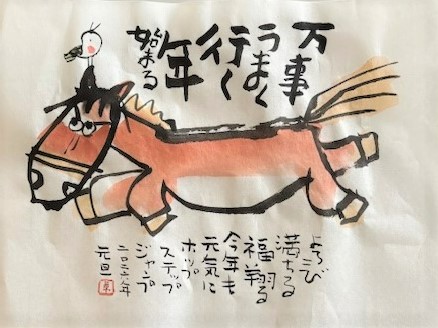 万事
うまく
行く
年
始まる
よろこび
満ちる
福翔る
今年も
元気に
ホップ
ステップ
ジャンプ
二〇二六年
元旦